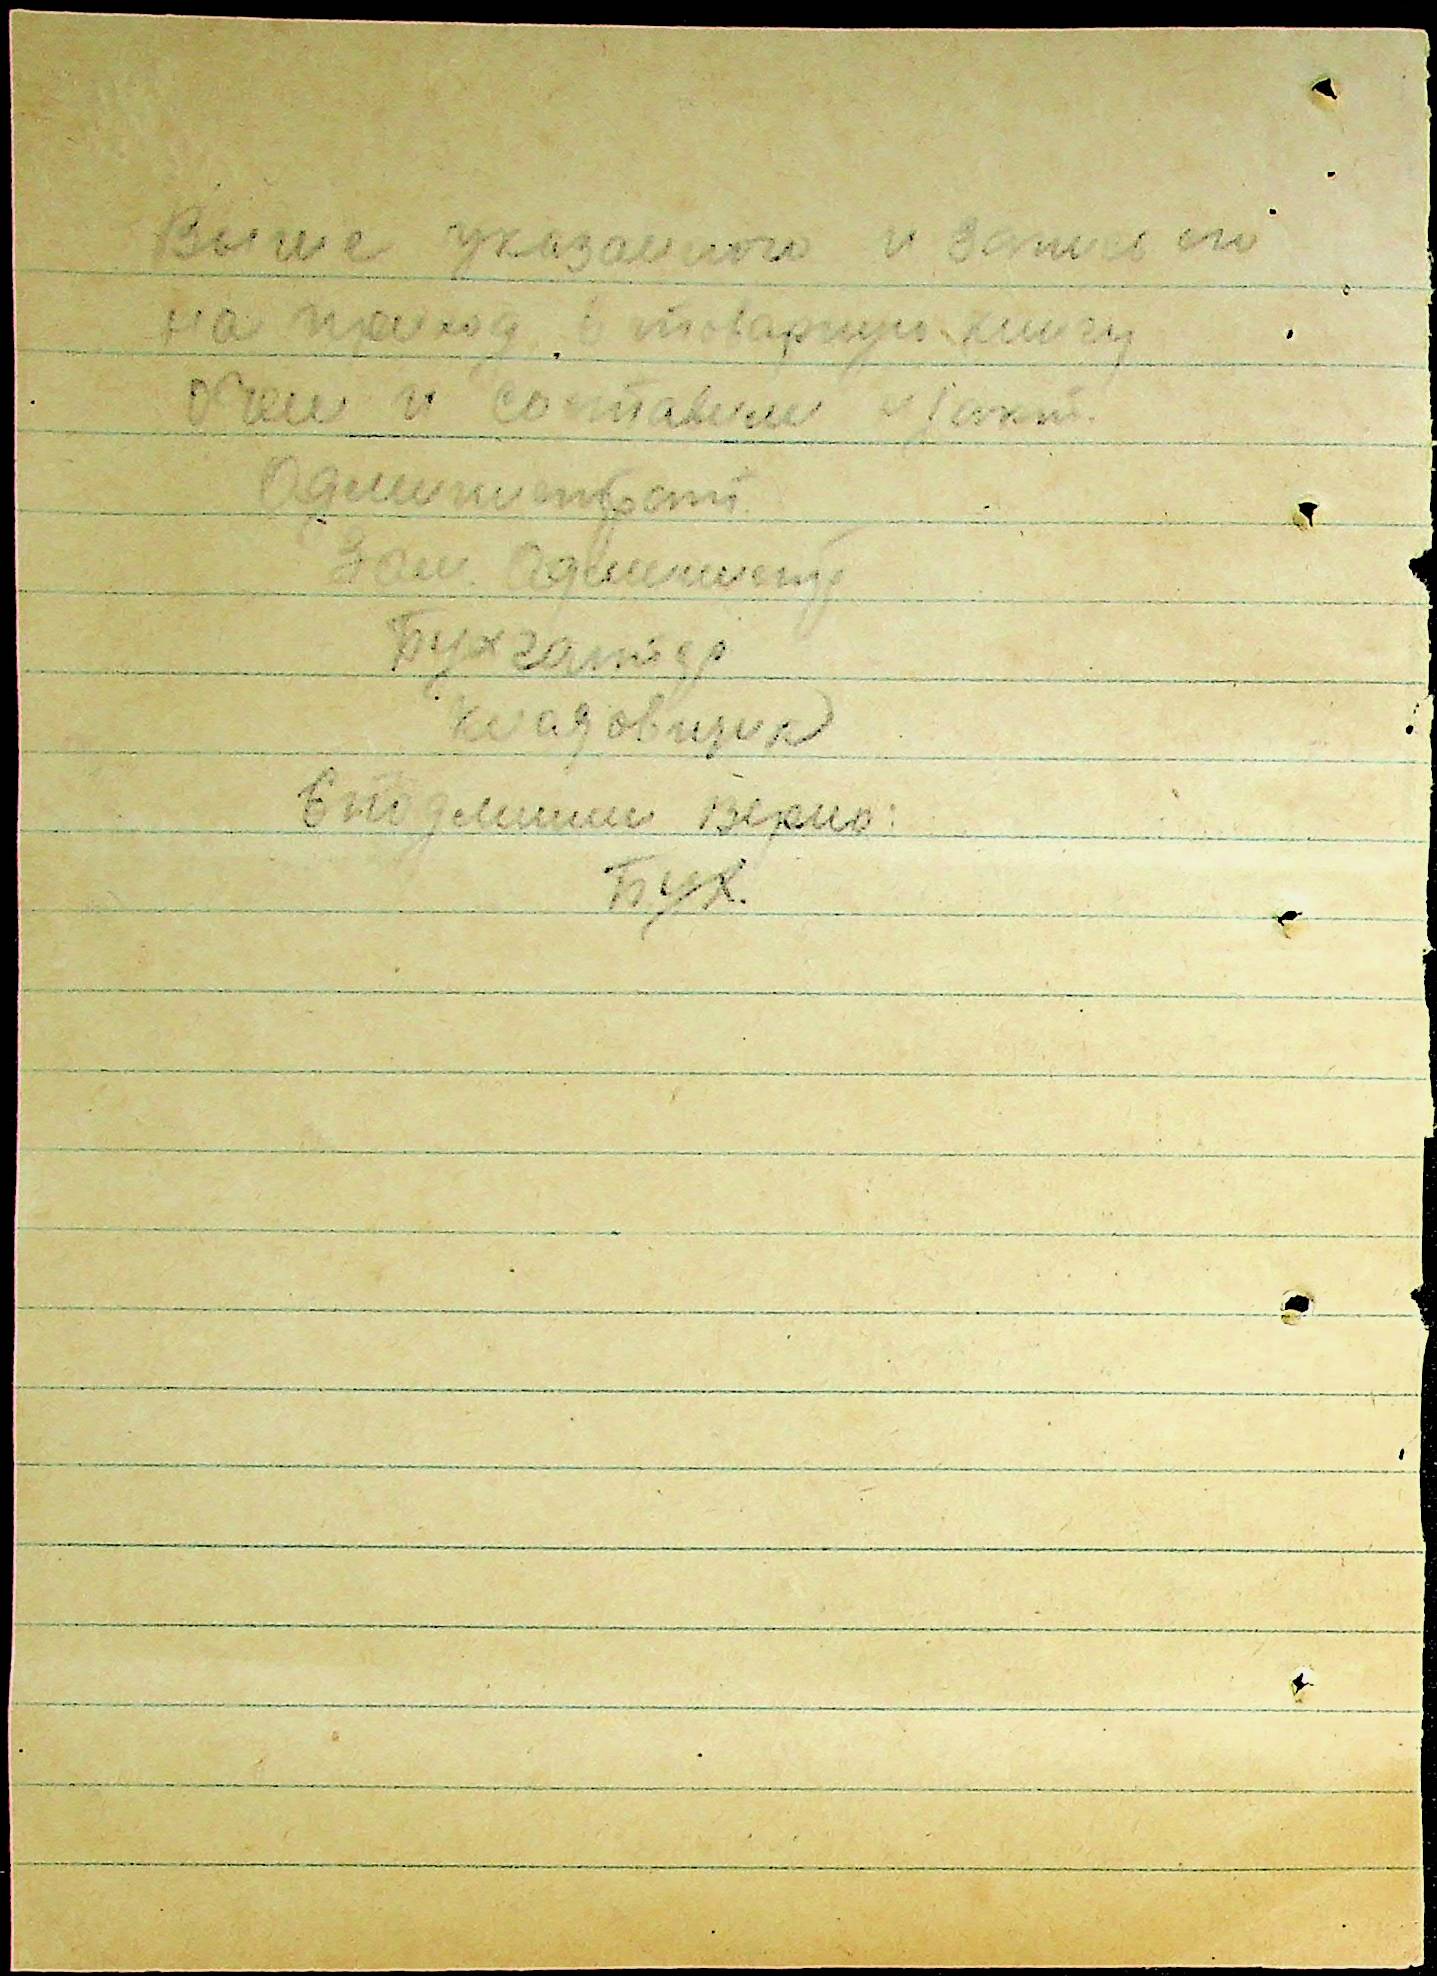 Выше указанного и запись его
на приход в товарную книгу
о чем и составлен н/акт.
Администрат.
Зам. Администр
Бухгалтер
Кладовщик
С подлинным верно:
Бух.